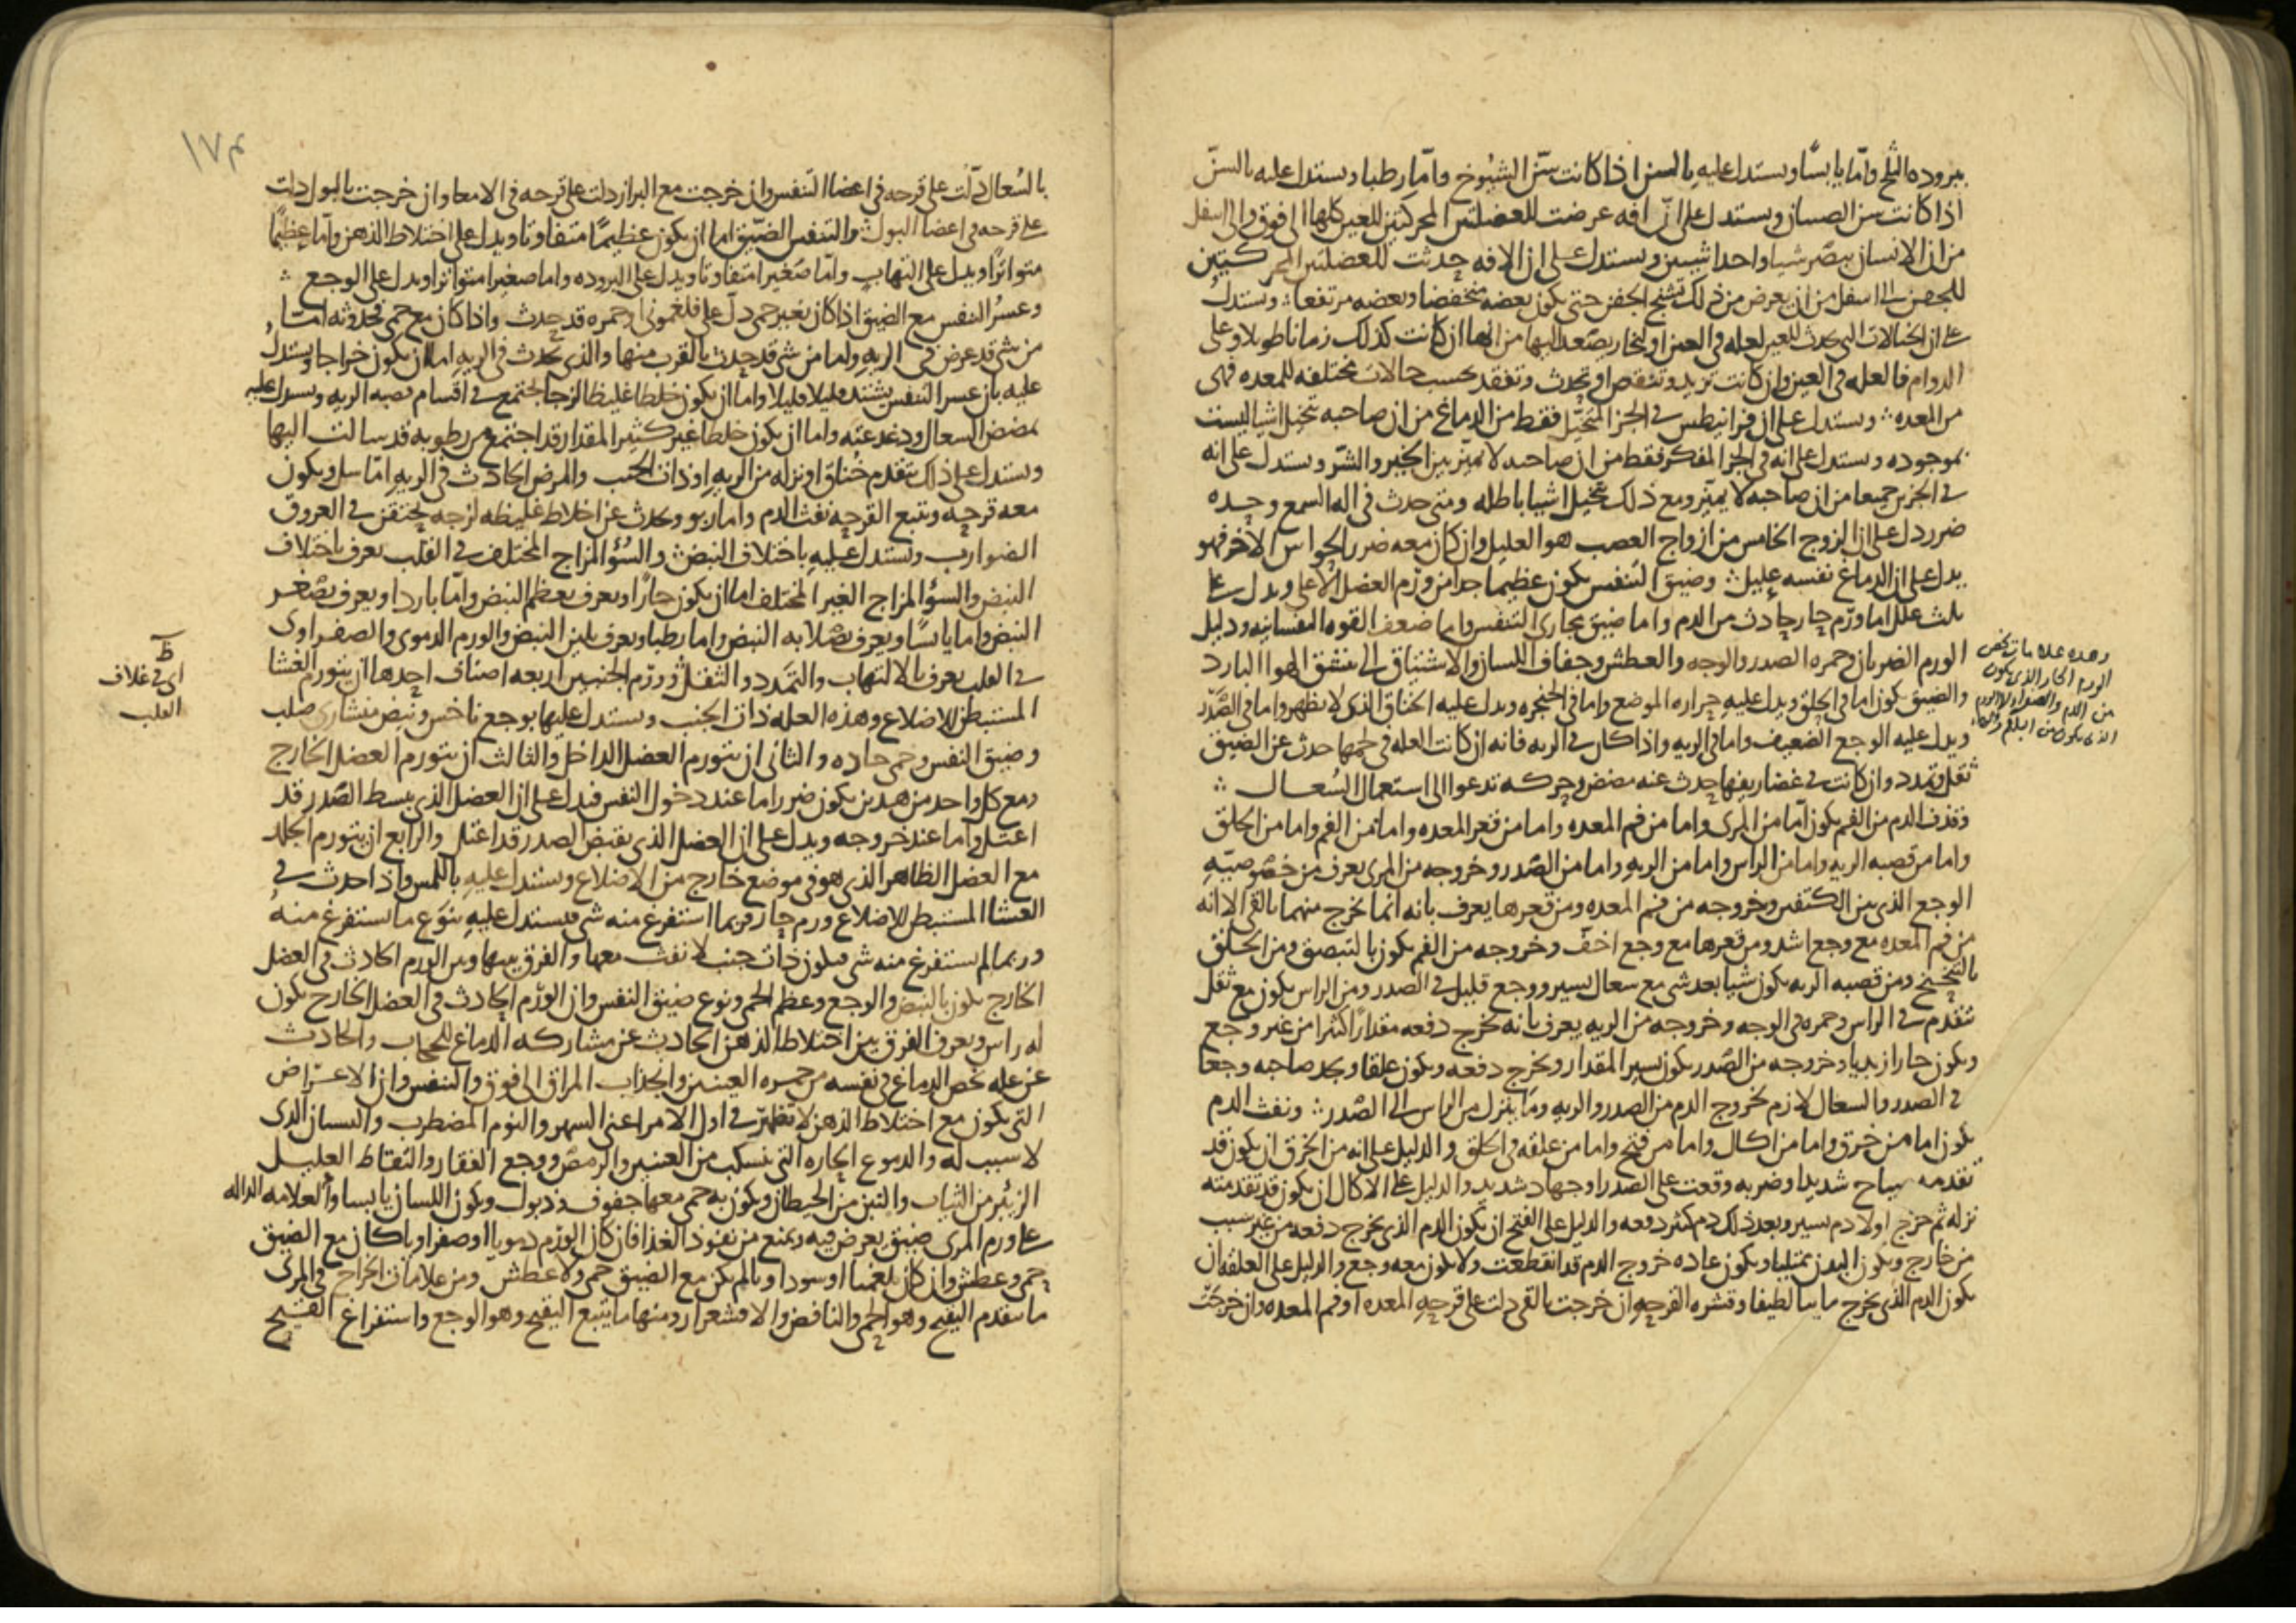 ببروده الثلج واما يابسا ويستدل عليه بالسن اذا كانت سن الشيوخ واما رطبا ويستدل عليه بالسن
اذا كانت سن الصبيان ويستدل على ان افه عرضت للعضلتين المحركتين للعين كلها الى فوق والى اسفل
من ان الانسان يبصر شيا واحدا شيين ويستدل على ان الافه حدثت للعضلتين المحركتين
للجفن الى اسفل من ان يعرض من ذلك تشنج الجفن حتى يكون بعضه منخفضا وبعضه مرتفعا ويستدل
على ان الخيالات التى تحدث للعين لعله فى العين او لبخار يصعد اليها من انها ان كانت كذلك زمانا طويلا وعلى
الدوام فالعله فى العين وان كانت تزيد وتنقص او تحدث وتفقد بحسب حالات مختلفه للمعده فهى
من المعده ويستدل على ان فرانيطس فى الجز المتخيل فقط من الدماغ من ان صاحبه تتخيل اشيا ليست
بموجوده ويستدل على انه فى الجز المفكر فقط من ان صاحبه لا يميز بين الخير والشر ويستدل على انه
فى الجزين جميعا من ان صاحبه لا يميز ومع ذلك تتخيل اشيا باطله ومتى حدث فى اله السمع وحده
ضرر دل على ان الزوج الخامس من ازواج العصب هو العليل وان كان معه ضرر الحواس الاخر فهو
يدل على ان الدماغ نفسه عليل وضيق التنفس يكون عظيما جدا من ورم العضل الاعلى ويدل على
ثلث علل اما ورم حار حادث من الدم واما ضيق مجارى التنفس واما ضعف القوه النفسانيه ودليل
الورم الضربان وحمره الصدر والوجه والعطش وجفاف اللسان والاشتياق الى تنشق الهوا البارد
والضيق يكون اما فى الحلق ويدل عليه حراره الموضع واما فى الحنجره ويدل عليه الخناق الذى لا يظهر واما فى الصدر
ويدل عليه الوجع الضعيف واما فى الريه واذا كان فى الريه فانه ان كانت العله فى لحمها حدث عن الضيق
ثقل وتمدد وان كانت فى غضاريفها حدث عنه مضض وحركه تدعوا الى استعمال السعال
وقذف الدم من الفم يكون اما من المرى واما من فم المعده واما من قعر المعده واما من الفم واما من الحلق
واما من قصبه الريه واما من الراس واما من الريه واما من الصدر وخروجه من المرى يعرف من خصوصيه
الوجع الذى بين الكتفين وخروجه من فم المعده ومن قعرها يعرف بانه انما يخرج منهما بالقى الا انه
من فم المعده مع وجع اشد ومن قعرها مع وجع اخف وخروجه من الفم يكون بالتبصق ومن الحلق
بالتنخنخ ومن قصبه الريه يكون شيا بعد شى مع سعال يسير ووجع قليل فى الصدر ومن الراس يكون مع ثقل
تقدم فى الراس وحمره فى الوجه وخروجه من الريه يعرف بانه يخرج دفعه مقدارا كثيرا من غير وجع
ويكون حارا زبديا وخروجه من الصدر يكون يسير المقدار ويخرج دفعه ويكون علقا ويجد صاحبه وجعا
فى الصدر والسعال لازم لخروج الدم من الصدر والريه وما ينزل من الراس الى الصدر ونفث الدم
يكون اما من خرق واما من اكال واما من فتح واما من علقه فى الحلق والدليل على انه من الخرق ان يكون قد
تقدمه صياح شديد او ضربه وقعت على الصدر او جهاد شديد والدليل على الاكال ان يكون قد تقدمته
نزله ثم خرج اولا دم يسير وبعد ذلك دم كثير دفعه والدليل على الفتح ان يكون الدم الذى يخرج دفعه من غير سبب
من خارج ويكون البدن ممتليا ويكون عاده خروج الدم قد انقطعت ولا يكون معه وجع والدليل على العلقه ان
يكون الدم الذى يخرج ماييا لطيفا وقشره القرحه ان خرجت بالقى دلت على قرحه المعده او فم المعده وان خرجت
وهذه علامات تخص
الورم الحار الذى يكون
من الدم والصفرا لا الورم
الذى يكون من البلغم
١٧٣
بالسعال دلت على قرحه فى اعضا التنفس وان خرجت مع البراز دلت على قرحه فى الامعا وان خرجت بالبول دلت
على قرحه فى اعضا البول والتنفس الضيق اما ان يكون عظيما متفاوتا ويدل على اختلاط الذهن واما عظيما
متواترا ويدل على التهاب واما صغيرا متفاوتا ويدل على البروده واما صغيرا متواترا ويدل على الوجع
وعسر النفس مع الضيق اذا كان بغير حمى دل على فلغمونى او حمره قد حدث واذا كان مع حمى فحدوثه اما
من شى قد عرض فى الريه واما من شى قد حدث بالقرب منها والذى يحدث فى الريه اما ان يكون خراجا ويستدل
عليه بان عسر النفس يشتد قليلا قليلا واما ان يكون خلطا غليظا لزجا اجتمع فى اقسام قصبه الريه ويستدل عليه
بمضض السعال ودغدغته واما ان يكون خلطا غير كثير المقدار قد اجتمع من رطوبه قد سالت اليها
ويستدل على ذلك بتقدم خناق او نزله من الريه او ذات الجنب والمرض الحادث فى الريه اما سل ويكون
معه قرحه ويتبع القرحه نفث الدم واما ربو ويحدث عن اخلاط غليظه لزجه تحتقن فى العروق
الضوارب ويستدل عليه باختلاف النبض والسؤ المزاج المختلف فى القلب يعرف باختلاف
النبض والسؤ المزاج الغير المختلف اما ان يكون حارا ويعرف بعظم النبض واما باردا ويعرف بصغر
النبض واما يابسا ويعرف بصلابه النبض واما رطبا ويعرف بلين النبض والورم الدموى والصفراوى
فى القلب يعرف بالالتهاب والتمدد والثقل وورم الجنبين اربعه اصناف احدها ان يتورم الغشا
المستبطن للاضلاع وهذه العله ذات الجنب ويستدل عليها بوجع ناخس ونبض منشارى صلب
وضيق النفس وحمى حاده والثانى ان يتورم العضل الداخل والثالث ان يتورم العضل الخارج
ومع كل واحد من هذين يكون ضرر اما عند دخول النفس فيدل على ان العضل الذى يبسط الصدر قد
اعتل واما عند خروجه ويدل على ان العضل الذى يقبض الصدر قد اعتل والرابع ان يتورم الجلد
مع العضل الظاهر الذى هو فى موضع خارج من الاضلاع ويستدل عليه باللمس واذا حدث فى
الغشا المستبطن للاضلاع ورم حار فربما استفرغ منه شى فيستدل عليه بنوع ما يستفرغ منه
وربما لم يستفرغ منه شى فيكون ذات جنب لا نفث معها والفرق بينها وبين الورم الحادث فى العضل
الخارج يكون بالنبض والوجع وعظم الحمى ونوع ضيق النفس وان الورم الحادث فى العضل الخارج يكون
له راس ويعرف الفرق بين اختلاط الذهن الحادث عن مشاركه الدماغ للحجاب والحادث
عن عله تخص الدماغ فى نفسه من حمره العينين وانجذاب المراق الى فوق والتنفس وان الاعراض
التى يكون مع اختلاط الذهن لا تظهر فى اول الامر اعنى السهر والنوم المضطرب والنسيان الذى
لا سبب له والدموع الحاره التى تنسكب من العينين والرمص ووجع الفقار والتقاط العليل
الزئبر من الثياب والتبن من الحيطان ويكون به حمى معها جفوف وذبول ويكون اللسان يابسا والعلامه الداله
على ورم المرى ضيق يعرض فيه ويمنع من نفوذ الغذا فان كان الورم دمويا او صفراويا كان مع الضيق
حمى وعطش وان كان بلغميا او سوداويا لم يكن مع الضيق حمى ولا عطش ومن علامات الخراج فى المرى
ما يتقدم التقيح وهو الحمى والنافض والاقشعرار ومنها ما يتبع التقيح وهو الوجع واستفراغ القيح
ظ
اى فى غلاف
القلب